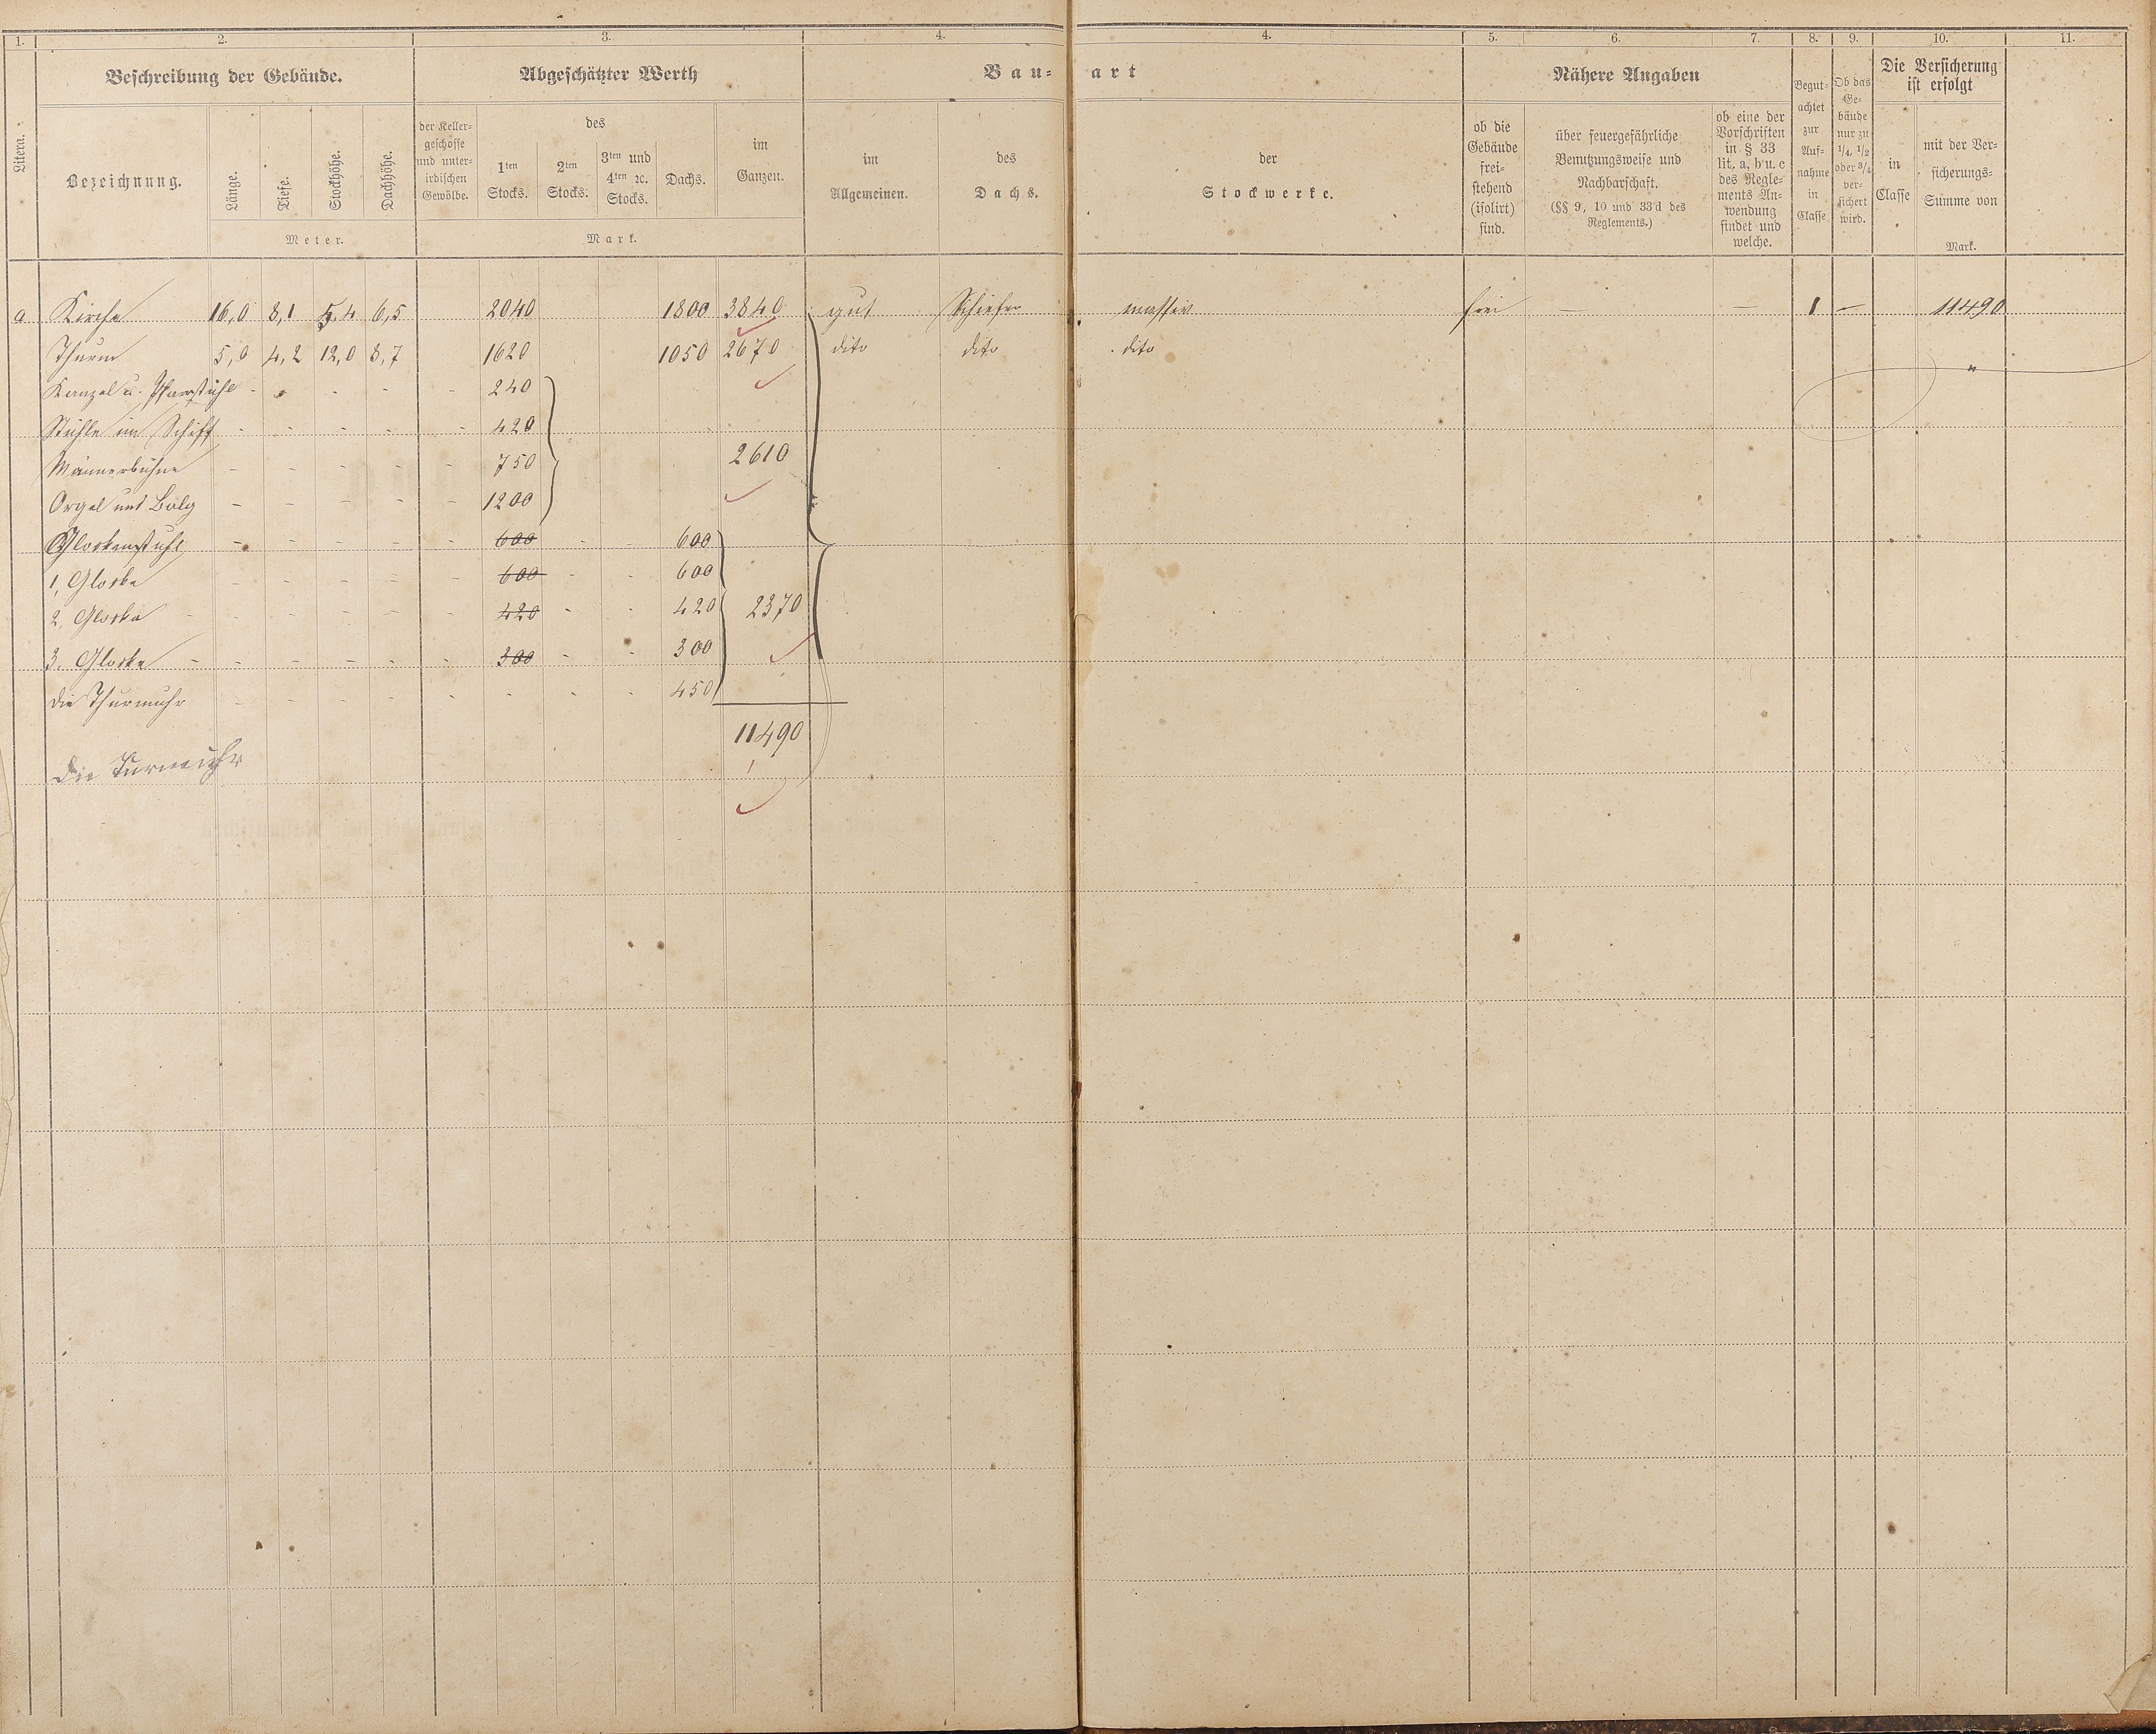 1. 2. 3. 4. 4. 5. 6. 7. 8. 9. 10. 11.
Litera.
Beschreibung der Gebäude.
Abgeschätzter Werth
Bau- art
Nähere Angaben
Begutachtet zur Aufnahme in Classe
Ob das Gebäude nur zu 1/4, 1/2 oder 3/4 versichert wird.
Die Versicherung ist erfolgt
Bezeichnung.
Länge.
Tiefe.
Stockhöhe.
Dachhöhe.
Meter.
der Kellergeschosse und unterirdischen Gewölbe.
des
1ten Stocks.
2ten Stocks.
3ten und 4ten ec. Stocks.
Dachs.
im Ganzen.
Mark.
im Allgemeinen.
des Dachs.
der Stockwerke.
ob die Gebäude frei-stehend (isolirt) sind.
über feuergefährliche Benutzungsweise und Nachbarschaft.
(§§ 9, 10 und 33 d des Reglements.)
ob eine der Vorschriften in § 33 lit. a, b u. c des Reglements Anwendung findet und welche.
in Classe
mit der Versicherungs-Summe von
Mark.
a. Kirche 16,0 8,1 5,4 6,5 2040 1800 3840 gut Schiefer massiv frei — — 1 — 11490
Thurm 5,0 4,2 12,0 8,7 1620 1050 2670 dito dito dito "
Kanzel u. Pfarrstuhl - - - - - 240
Stühle im Schiff - - - - - 420
Männerbühne - - - - - 750 2610
Orgel und Balg - - - - - 1200
Glockenstuhl - - - - - 600 - - 600
1, Glocke - - - - - 600 - - 600
2, Glocke - - - - - 420 - - 420 2370
3, Glocke - - - - - 300 - - 300
Die Thurmuhr - - - - - - - - 450
11490
Die Turmuhr